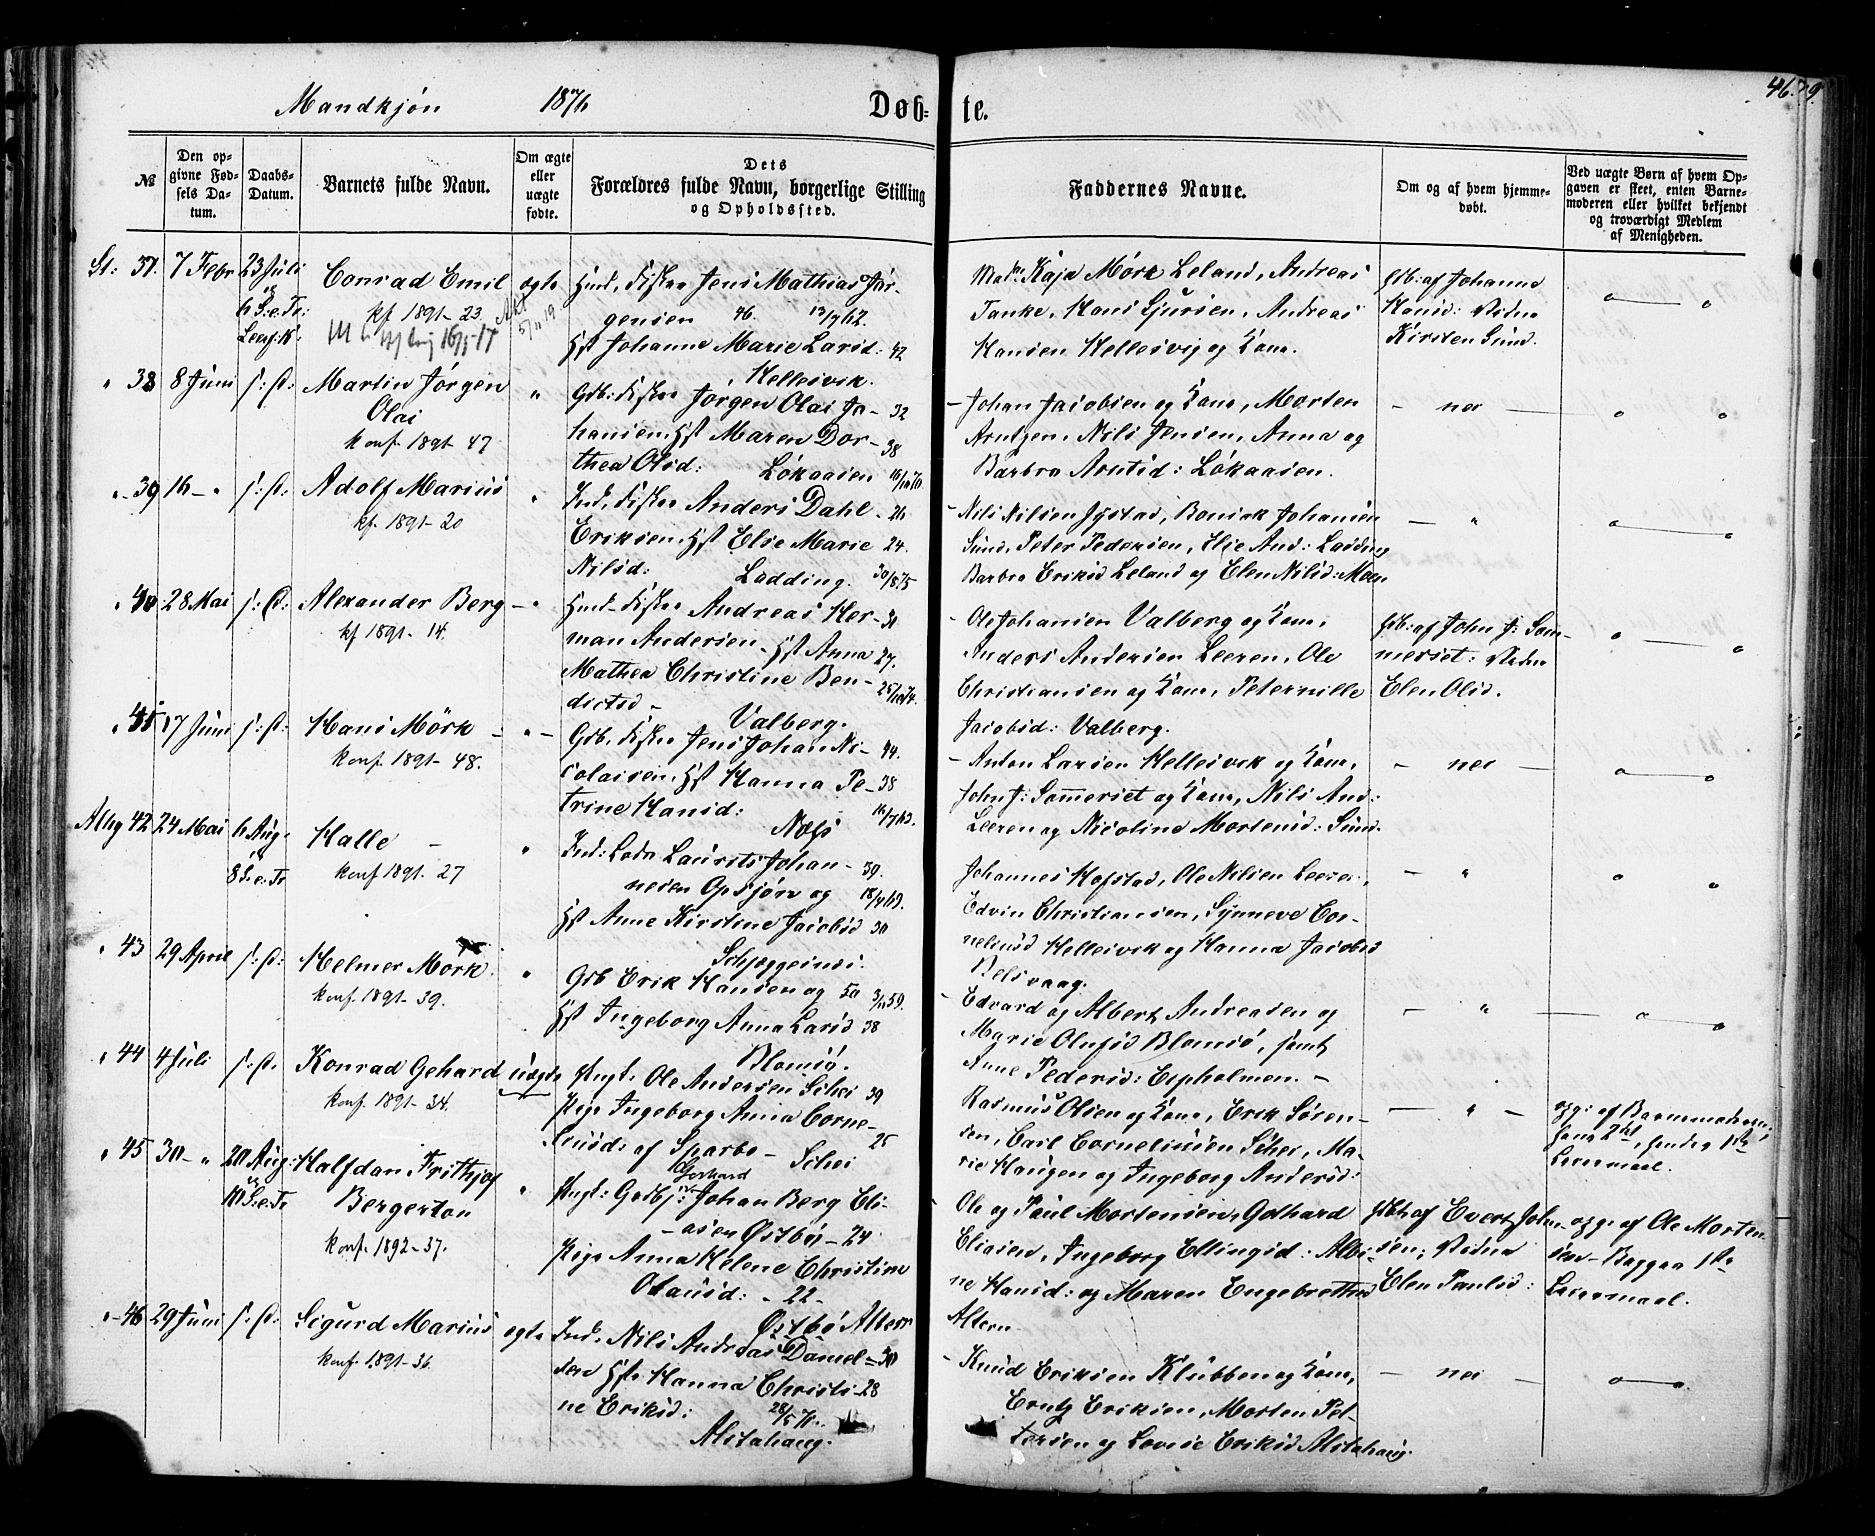 Mandkjön 1876 Døb- te.
46.79
№
Den opgivne Fødsels Datum.
Daabs-Datum.
Barnets fulde Navn.
Om ægte eller uægte fødte.
Dets Forældres fulde Navn, borgerlige Stilling og Opholdssted.
Faddernes Navne.
Om og af hvem hjemmedøbt.
Ved uægte Børn af hvem Opgaven er skeet, enten Barnemoderen eller hvilket bekjendt og troværdigt Medlem af Menigheden.
St: 37. 7 Febr 23 Juli
6 S. e. Tr:
Conrad Emil ægte
kf 1891-23
Hmd, Fisker Jens Mathias Jör-
gensen 46. 13/7 62.
Hst Johanne Marie Larsd: 42
Hellesvik.
Mad: Kaja Mørk Leland, Andreas
Tanke, Hans Sjursen, Andreas
Hansen Hellesvig og Kone.
Hdb: af Johanna
Hansd: Vidne
Kirsten Sund.
" 38 8 Juni s: D: Martin Jörgen
Olai
konf. 1891-47
Gdb: Fisker Jörgen Olai Jo- 32
hansen, Hst Maren Dor- 38
thea Olsd: Lökaasen
- Johan Jacobsen og Kone, Morten
Arntzen, Nils Jensen, Anna og
Barbro Arntsd: Lökaasen.
- nei -
" 39 16 - " s: D: Adolf Marius "
kf. 1891-20
Ind, Fisker Anders Dahl - 26
Eriksen, Hst Elie Marie 24.
Nilsd: Ladding. 30/8 75
- Nils Nilsen Jystad, Boniak Johansen
Sund, Peter Pedersen, Elie And: Ladding
Barbro Eriksd Leland og Elen Nilsd: Moen
- "
" 40 28 Mai s: D: Alexander Berg - "
kf 1891-14.
Hmd - Fisker Andreas Her- 31
man Andersen, Hst Anna 27.
Mathea Christine Ben-
dictsd - Valberg.
- Ole Johansen Valberg og Kone,
Anders Andersen Leeren, Ole
Christiansen og Kone, Peternille
Jacobsd: Valberg.
Hdb: af John J: Som-
merset: Vidne
Elen Olsd.
" 41 17 Juni s: D: Hans Mörk - " -
konf. 1891-48.
Gdb. Fisker Jens Johan Ni- 44.
colaisen, Hst Hanna Pe- 38
trine Hansd: Næss
- Anton Larsen Hellesvik og Kone,
John J: Sommerset og Kone, Nils And:
Leeren og Nicoline Mortensd: Sund.
- nei -
42 24 Mai 6 Aug:
8 S. e. Tr
Halle - "
konf 1891-27
Ind: Lods Laurits Johan- 39.
nesen Opsjön og 18/7 63.
Hst Anne Kirstine Jacobsd 30
Johannes Hofstad, Ole Nilsen Leeren,
Edvin Christiansen, Synneve Cor-
neliusd Hellesvik og Hanna Jacobsd
Relsvaag.
- "
" 43 29 April s: D: Helmer Mörk. "
konf. 1891-39.
Gdb Erik Hansen og 50 3/11 59.
Hst Ingeborg Anna Larsd 38
Blomsö.
- Edvard og Albert Andreasen og
Marie Olufsd Blomsö, samt
Anne Pedersd: Espholmen. -
- " -
" 44 4 Juli s: D. Konrad Gehard uægte
konf. 1891-34.
Ungk: Ole Andersen Schei 39
Pige Ingeborg Anna Corne-
liusd: af Sparbo - 25
Schei
Rasmus Olsen og Kone, Erik Sören-
sen, Carl Corneliussen Schei, Ma-
rie Haugen og Ingeborg Andersd:
- " -
opg: af Barnemoderen;
hans 2det, hendes 1ste
Leiermaal.
" 45 30 - " 20 Aug:
10 S. e. Tr
Halfdan Frithjof
Bergerton
konf. 1892-37.
"
Gerhard
Ungk: Gadbj: Johan Berg Eli-
asen Østbö - 24
Pige Anna Helene Christine
Olausd: - 22 -
Østbö Altern
Ole og Paul Mortensen, Gothard
Eliasen, Ingeborg Ellingsd: Albi-
ne Hansd: og Maren Engebrethsd
Altern
Hdbt af Evert John-
sen; Vidne
Elen Paulsd:
opg: af Ole Morten-
sen - Baggaa 1ste
Leiermaal.
" 46 29 Juni s: D: Sigurd Marius ægte
konf. 1891-36.
Ind: Nils Andreas Daniel- 30
sen Hst: Hanna Christi- 28
ne Eriksd: 28/5 76.
Alstahaug.
- Knud Eriksen Klubben og Kone,
Erntz Eriksen, Morten Pet-
tersen og Lovise Eriksd Alstahaug.
- nei -